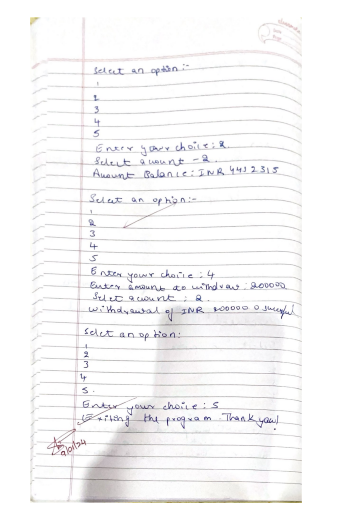 Select an option :-
1
2
3
4
5
Enter your choice : 2
Select account - 2.
Account Balance : INR 4412315
Select an option :-
1
2
3
4
5
Enter your choice : 4
Enter amount to withdraw : 200000
Select account : 2.
Withdrawal of INR 200000
Select an option :
1
2
3
4
5.
Enter your choice : 5
Exiting the program. Thank you!